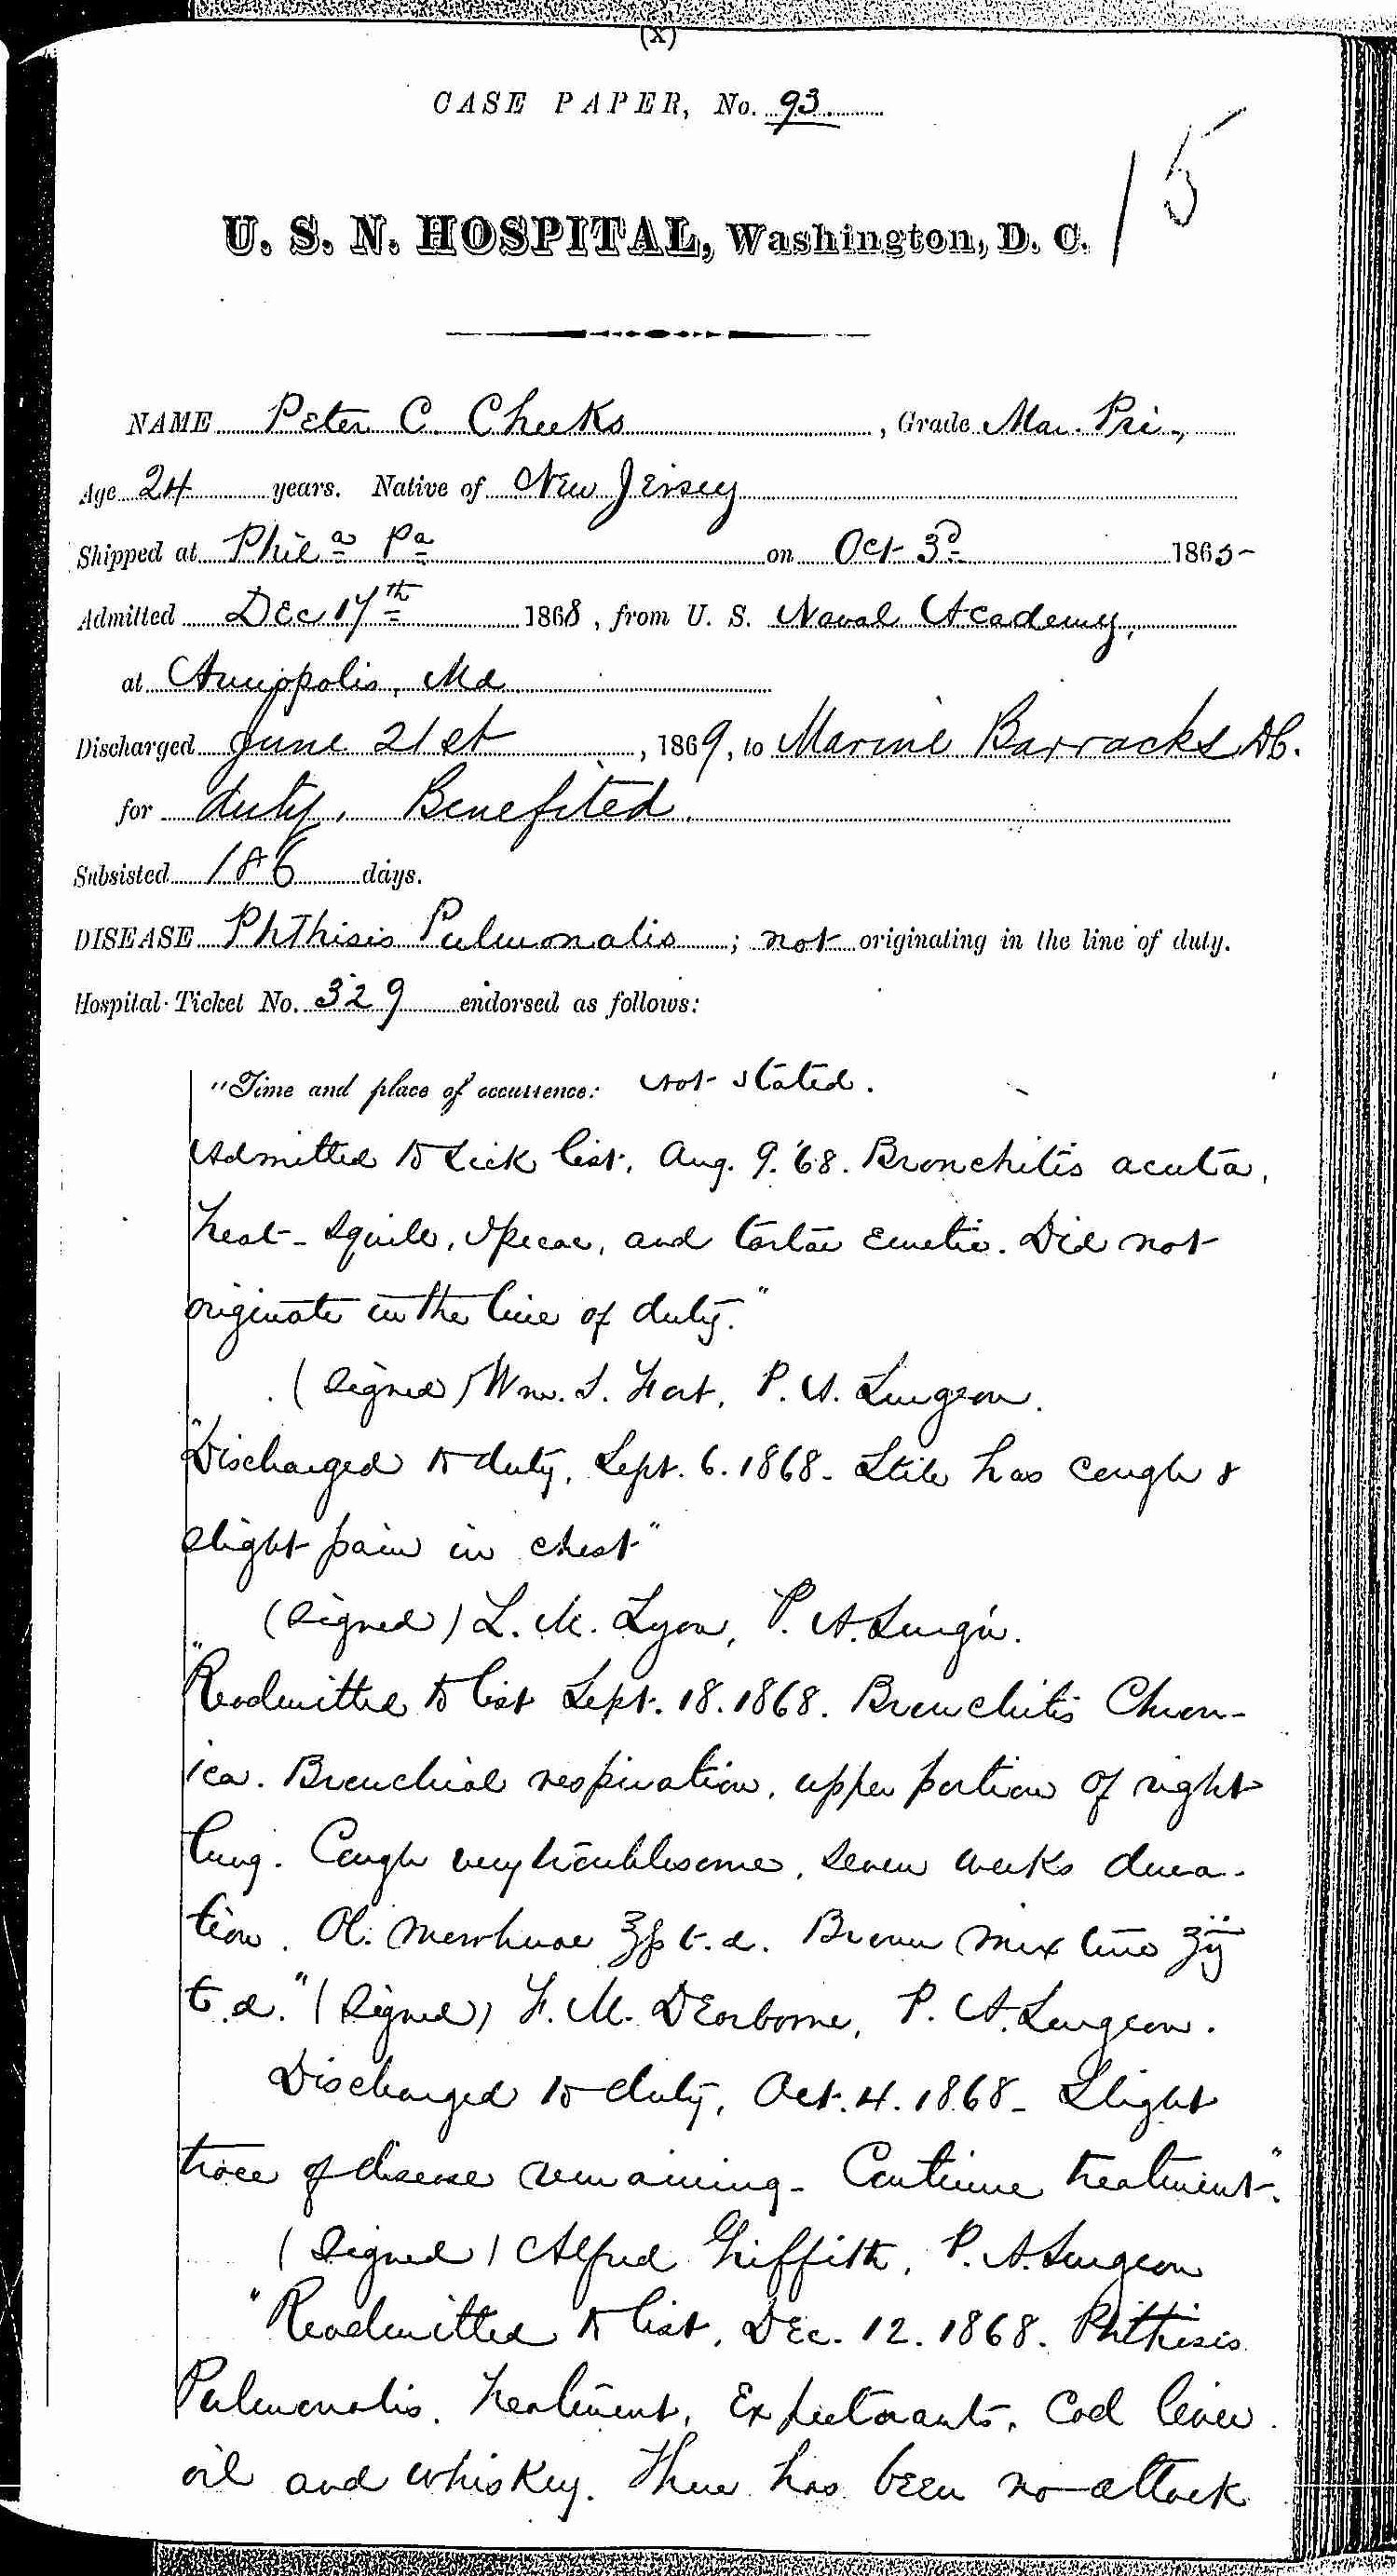 (x)
CASE PAPER, No. 93.
15
U. S. N. HOSPITAL, Washington, D. C.
NAME Peter C. Cheeks, Grade Mar. Pri.,
Age 24 years. Native of New Jersey
Shipped at Phila Pa on Oct 3d 1865-
Admitted Dec 17th 1868, from U. S. Naval Academy,
at Annapolis, Md
Discharged June 21st, 1869, to Marine Barracks DC.
for duty. Benefited.
Subsisted 186 days.
DISEASE Phthisis Pulmonalis; not originating in the line of duty.
Hospital Ticket No. 329 endorsed as follows:
"Time and place of occurrence: Not stated.
Admitted to sick list, Aug. 9. '68. Bronchitis acuta,
Treat- Squills, Ipecac, and tartar emetic. Did not
originate in the line of duty."
(Signed) Wm. S. Fort, P. A. Surgeon.
"Discharged to duty, Sept. 6. 1868- Still has cough &
slight pain in chest"
(Signed) L. M. Lyon, P. A. Surg'n.
"Readmitted to list Sept. 18. 1868. Bronchitis Chron-
ica. Bronchial respiration, upper portion of right
lung. Cough very troublesome, seven weeks dura-
tion. Ol. Morrhuae ℥ß t.d. Brown mixture ʒij
t.d." (Signed) F. M. Dearborne, P. A. Surgeon.
Discharged to duty, Oct. 4. 1868- Slight
trace of disease remaining- Continue treatment".
(Signed) Alfred Griffith, P. A. Surgeon
"Readmitted to list, Dec. 12. 1868. Phthisis
Pulmonalis. Treatment, Expectorants, Cod liver
oil and whiskey. There has been no attack